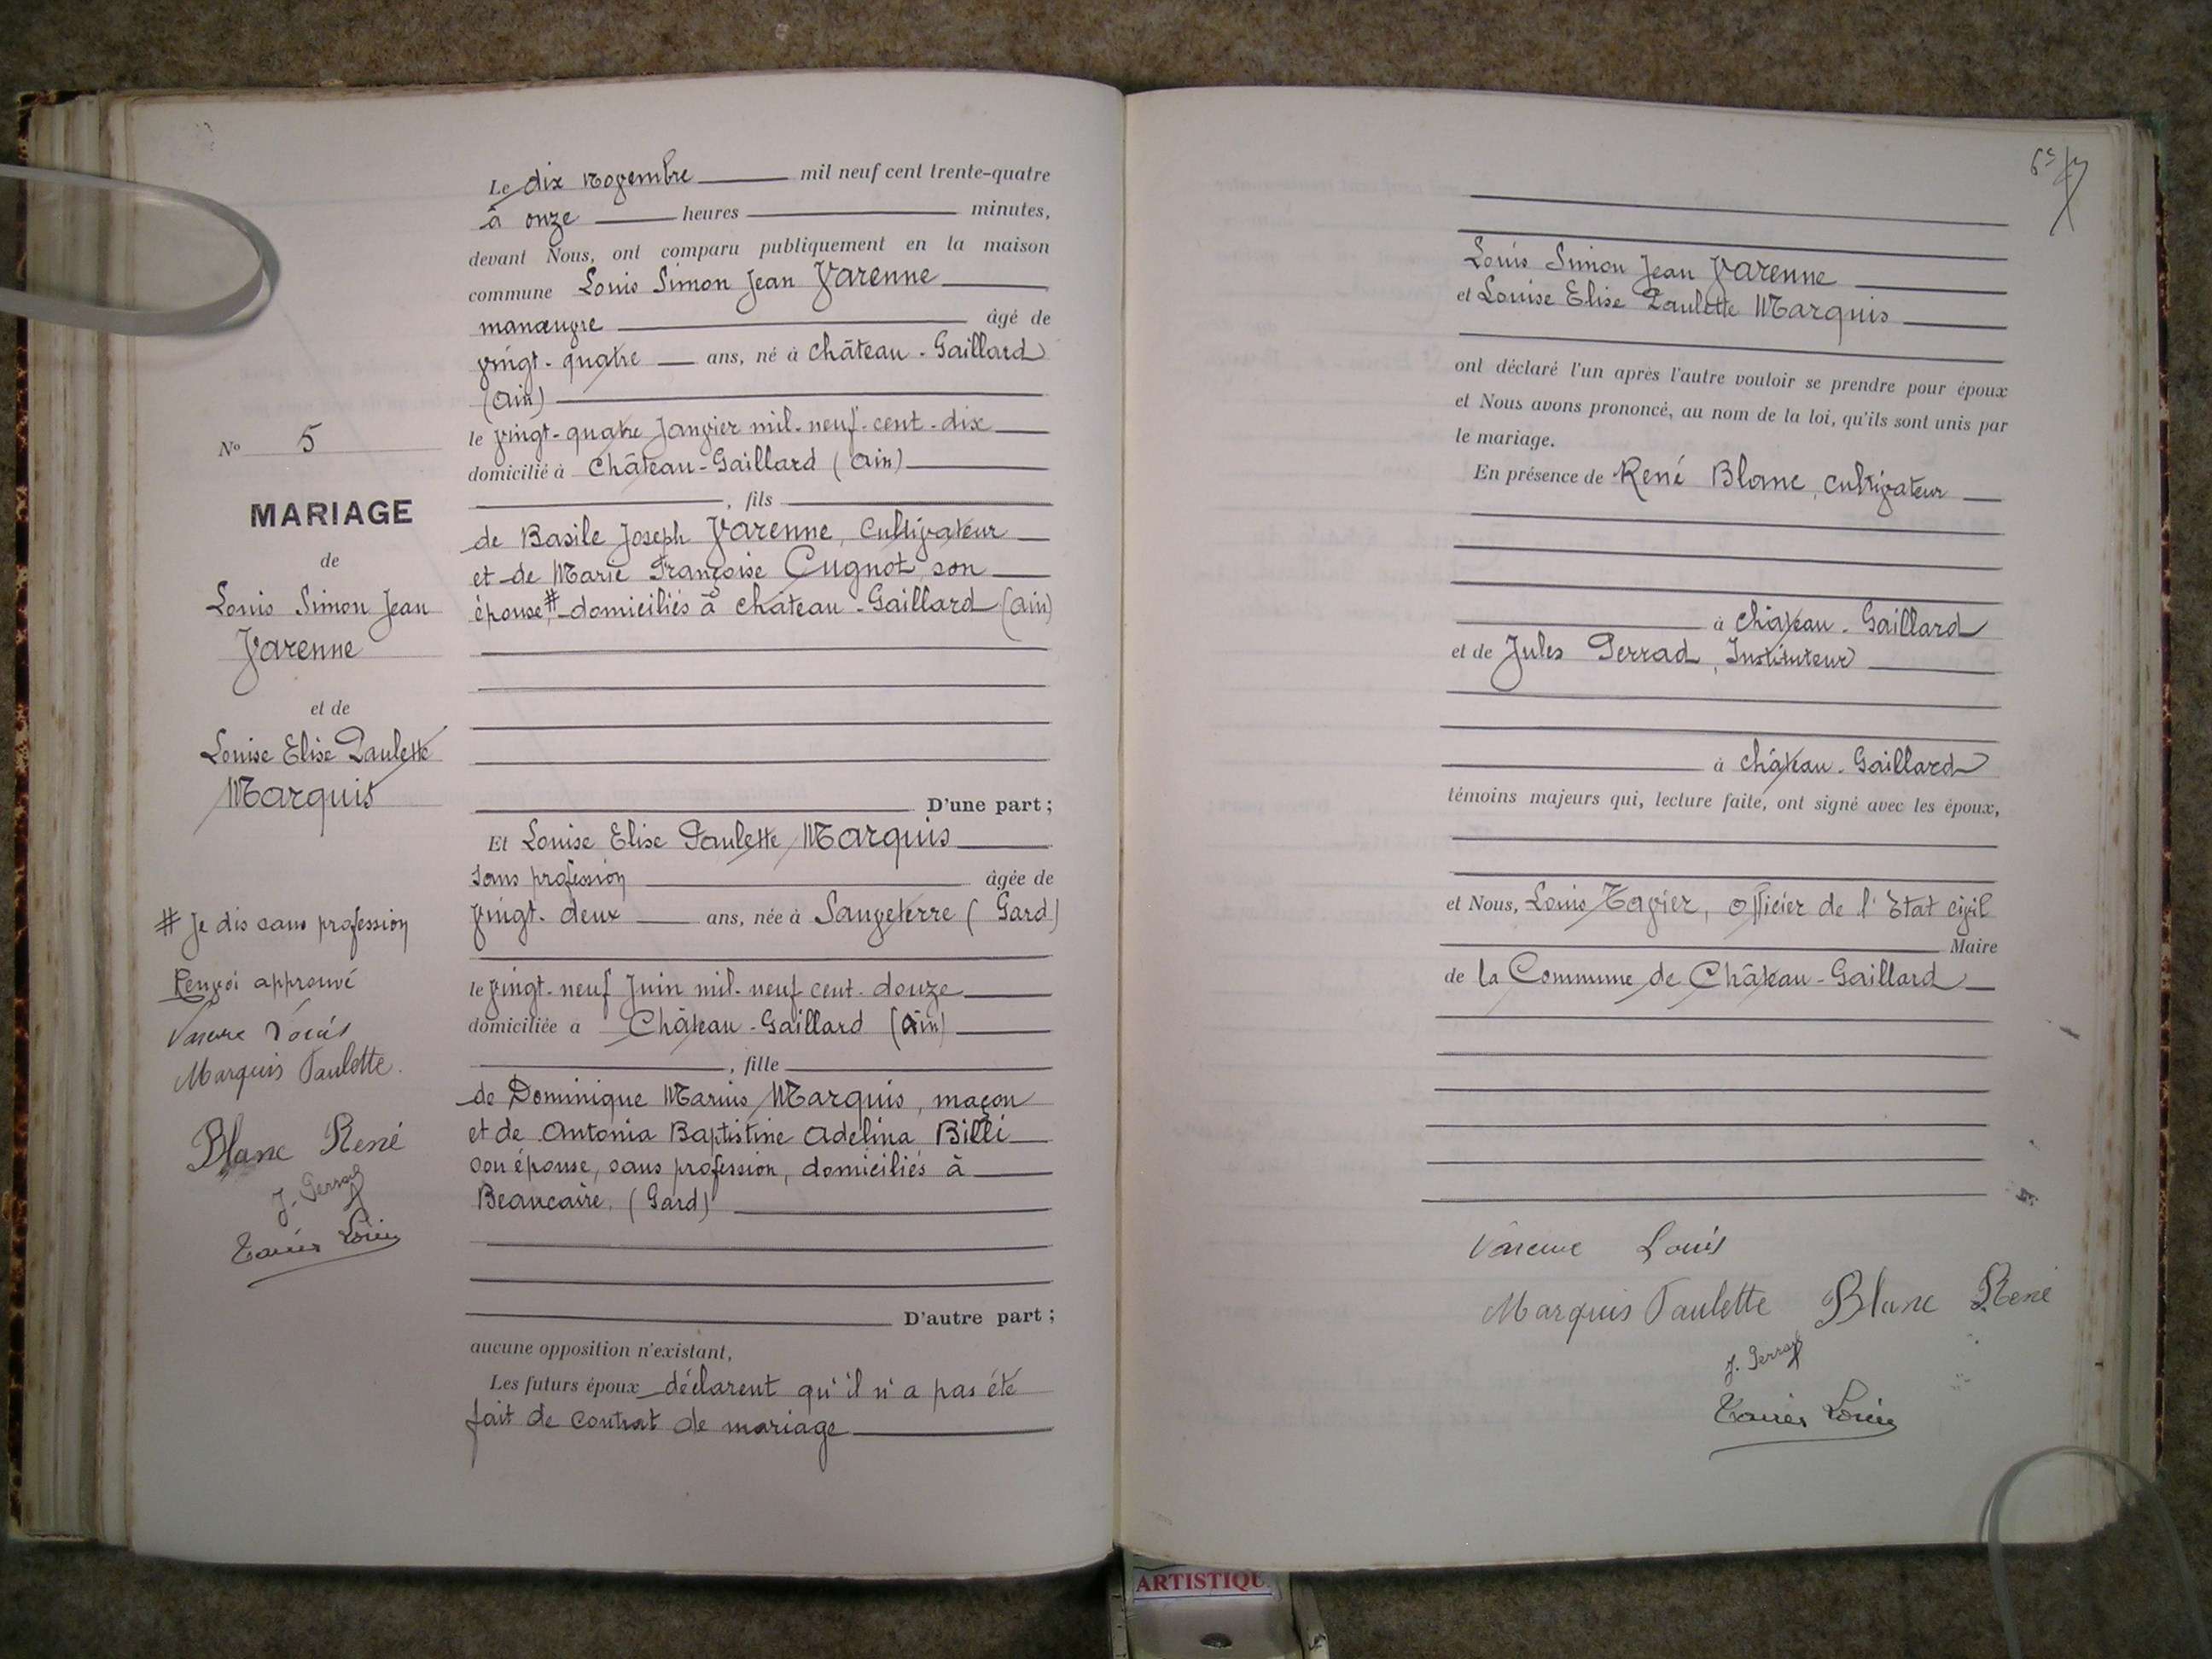 N° 5
MARIAGE
de
Louis Simon Jean
Varenne
et de
Louise Elise Paulette
Marquis
# Je dis sans profession
Renvoi approuvé
Varenne Louis
Marquis Paulette.
Blanc René
J. Perrad
Tavier Louis
Le dix novembre mil neuf cent trente-quatre
à onze heures minutes,
devant Nous, ont comparu publiquement en la maison
commune Louis Simon Jean Varenne
manœuvre âgé de
vingt-quatre ans, né à Château-Gaillard
(Ain)
le vingt-quatre Janvier mil-neuf-cent-dix
domicilié à Château-Gaillard (Ain)
, fils
de Basile Joseph Varenne, Cultivateur
et de Marie Françoise Cugnot, son
épouse, # domiciliés à Château-Gaillard (Ain)
D'une part ;
Et Louise Elise Paulette Marquis
sans profession âgée de
vingt-deux ans, née à Sauveterre (Gard)
le vingt-neuf Juin mil-neuf cent-douze
domiciliée à Château-Gaillard (Ain)
, fille
de Dominique Marius Marquis, maçon
et de Antonia Baptistine Adelina Billi
son épouse, sans profession, domiciliés à
Beaucaire, (Gard)
D'autre part ;
aucune opposition n'existant,
Les futurs époux déclarent qu'il n'a pas été
fait de contrat de mariage
Louis Simon Jean Varenne
et Louise Elise Paulette Marquis
ont déclaré l'un après l'autre vouloir se prendre pour époux
et Nous avons prononcé, au nom de la loi, qu'ils sont unis par
le mariage.
En présence de René Blanc, cultivateur
à Château-Gaillard
et de Jules Perrad, Instituteur
à Château-Gaillard
témoins majeurs qui, lecture faite, ont signé avec les époux,
et Nous, Louis Tavier, Officier de l'Etat civil
Maire
de la Commune de Château-Gaillard
Varenne Louis
Marquis Paulette Blanc René
J. Perrad
Tavier Louis
ARTISTIQU